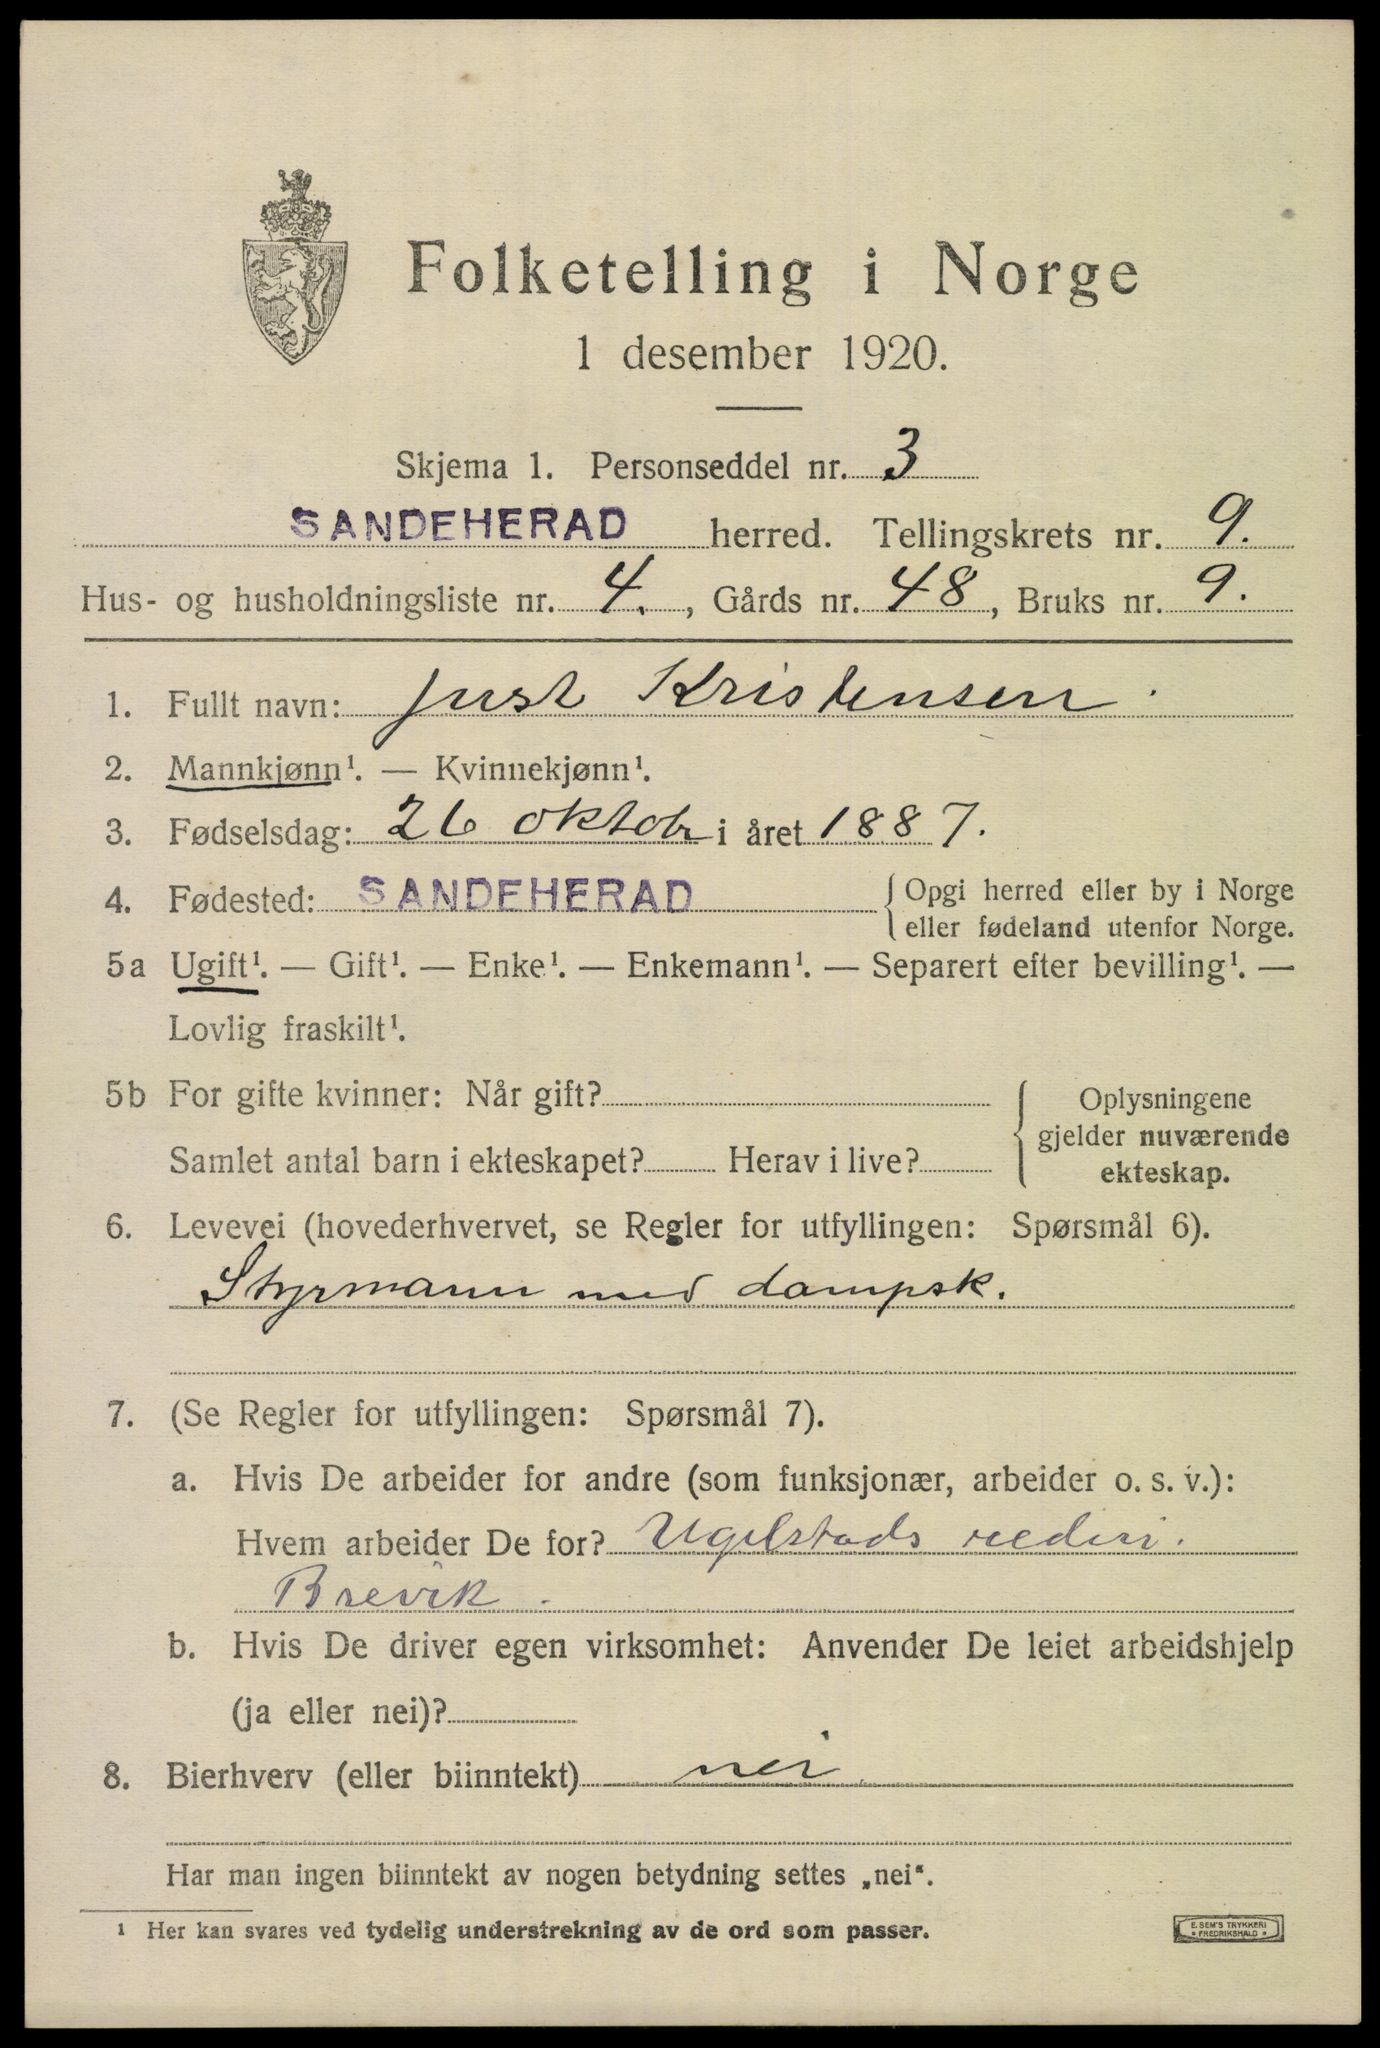 Folketelling i Norge
1 desember 1920.
Skjema 1. Personseddel nr. 3
SANDEHERAD herred. Tellingskrets nr. 9.
Hus- og husholdningsliste nr. 4., Gårds nr. 48, Bruks nr. 9.
1. Fullt navn: Just Kristensen.
2. Mannkjønn¹. — Kvinnekjønn¹.
3. Fødselsdag: 26 oktobr i året 1887.
4. Fødested: SANDEHERAD { Opgi herred eller by i Norge
eller fødeland utenfor Norge.
5a Ugift¹. — Gift¹. — Enke¹. — Enkemann¹. — Separert efter bevilling¹. —
Lovlig fraskilt¹.
5b For gifte kvinner: Når gift?
Samlet antal barn i ekteskapet? Herav i live?
{ Oplysningene
gjelder nuværende
ekteskap.
6. Levevei (hovederhvervet, se Regler for utfyllingen: Spørsmål 6).
Styrmann med dampsk.
7. (Se Regler for utfyllingen: Spørsmål 7).
a. Hvis De arbeider for andre (som funksjonær, arbeider o. s. v.):
Hvem arbeider De for? Ugelstads rederi.
Brevik.
b. Hvis De driver egen virksomhet: Anvender De leiet arbeidshjelp
(ja eller nei)?
8. Bierhverv (eller biinntekt) nei.
Har man ingen biinntekt av nogen betydning settes „nei“.
¹ Her kan svares ved tydelig understrekning av de ord som passer.
E. SEM'S TRYKKERI
* FREDRIKSHALD *